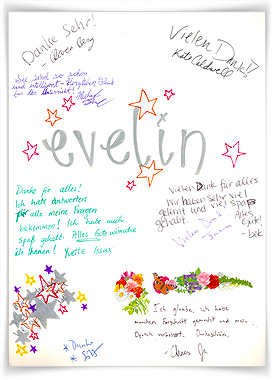 Danke Sehr!
Vielen Dank!
Kate Caldwell
Sie sind so schön
und intelligent - Vielen Dank
für Ihr Unterricht!
evelin
Danke für alles!
Ich habe Antworten
für alle meine Fragen
bekommen! Ich habe auch
Spaß gehabt. Alles Gute wünsche
ich Ihnen! Yvette Issac
Vielen Dank für alles.
Wir haben sehr viel
gelernt und viel Spaß
gehabt. Alles
Gute!
Vielen Dank
Ich glaube, ich habe
manchen Fortschritt gemacht und mein
Deutsch verbessert. Dankeschön.
Danke